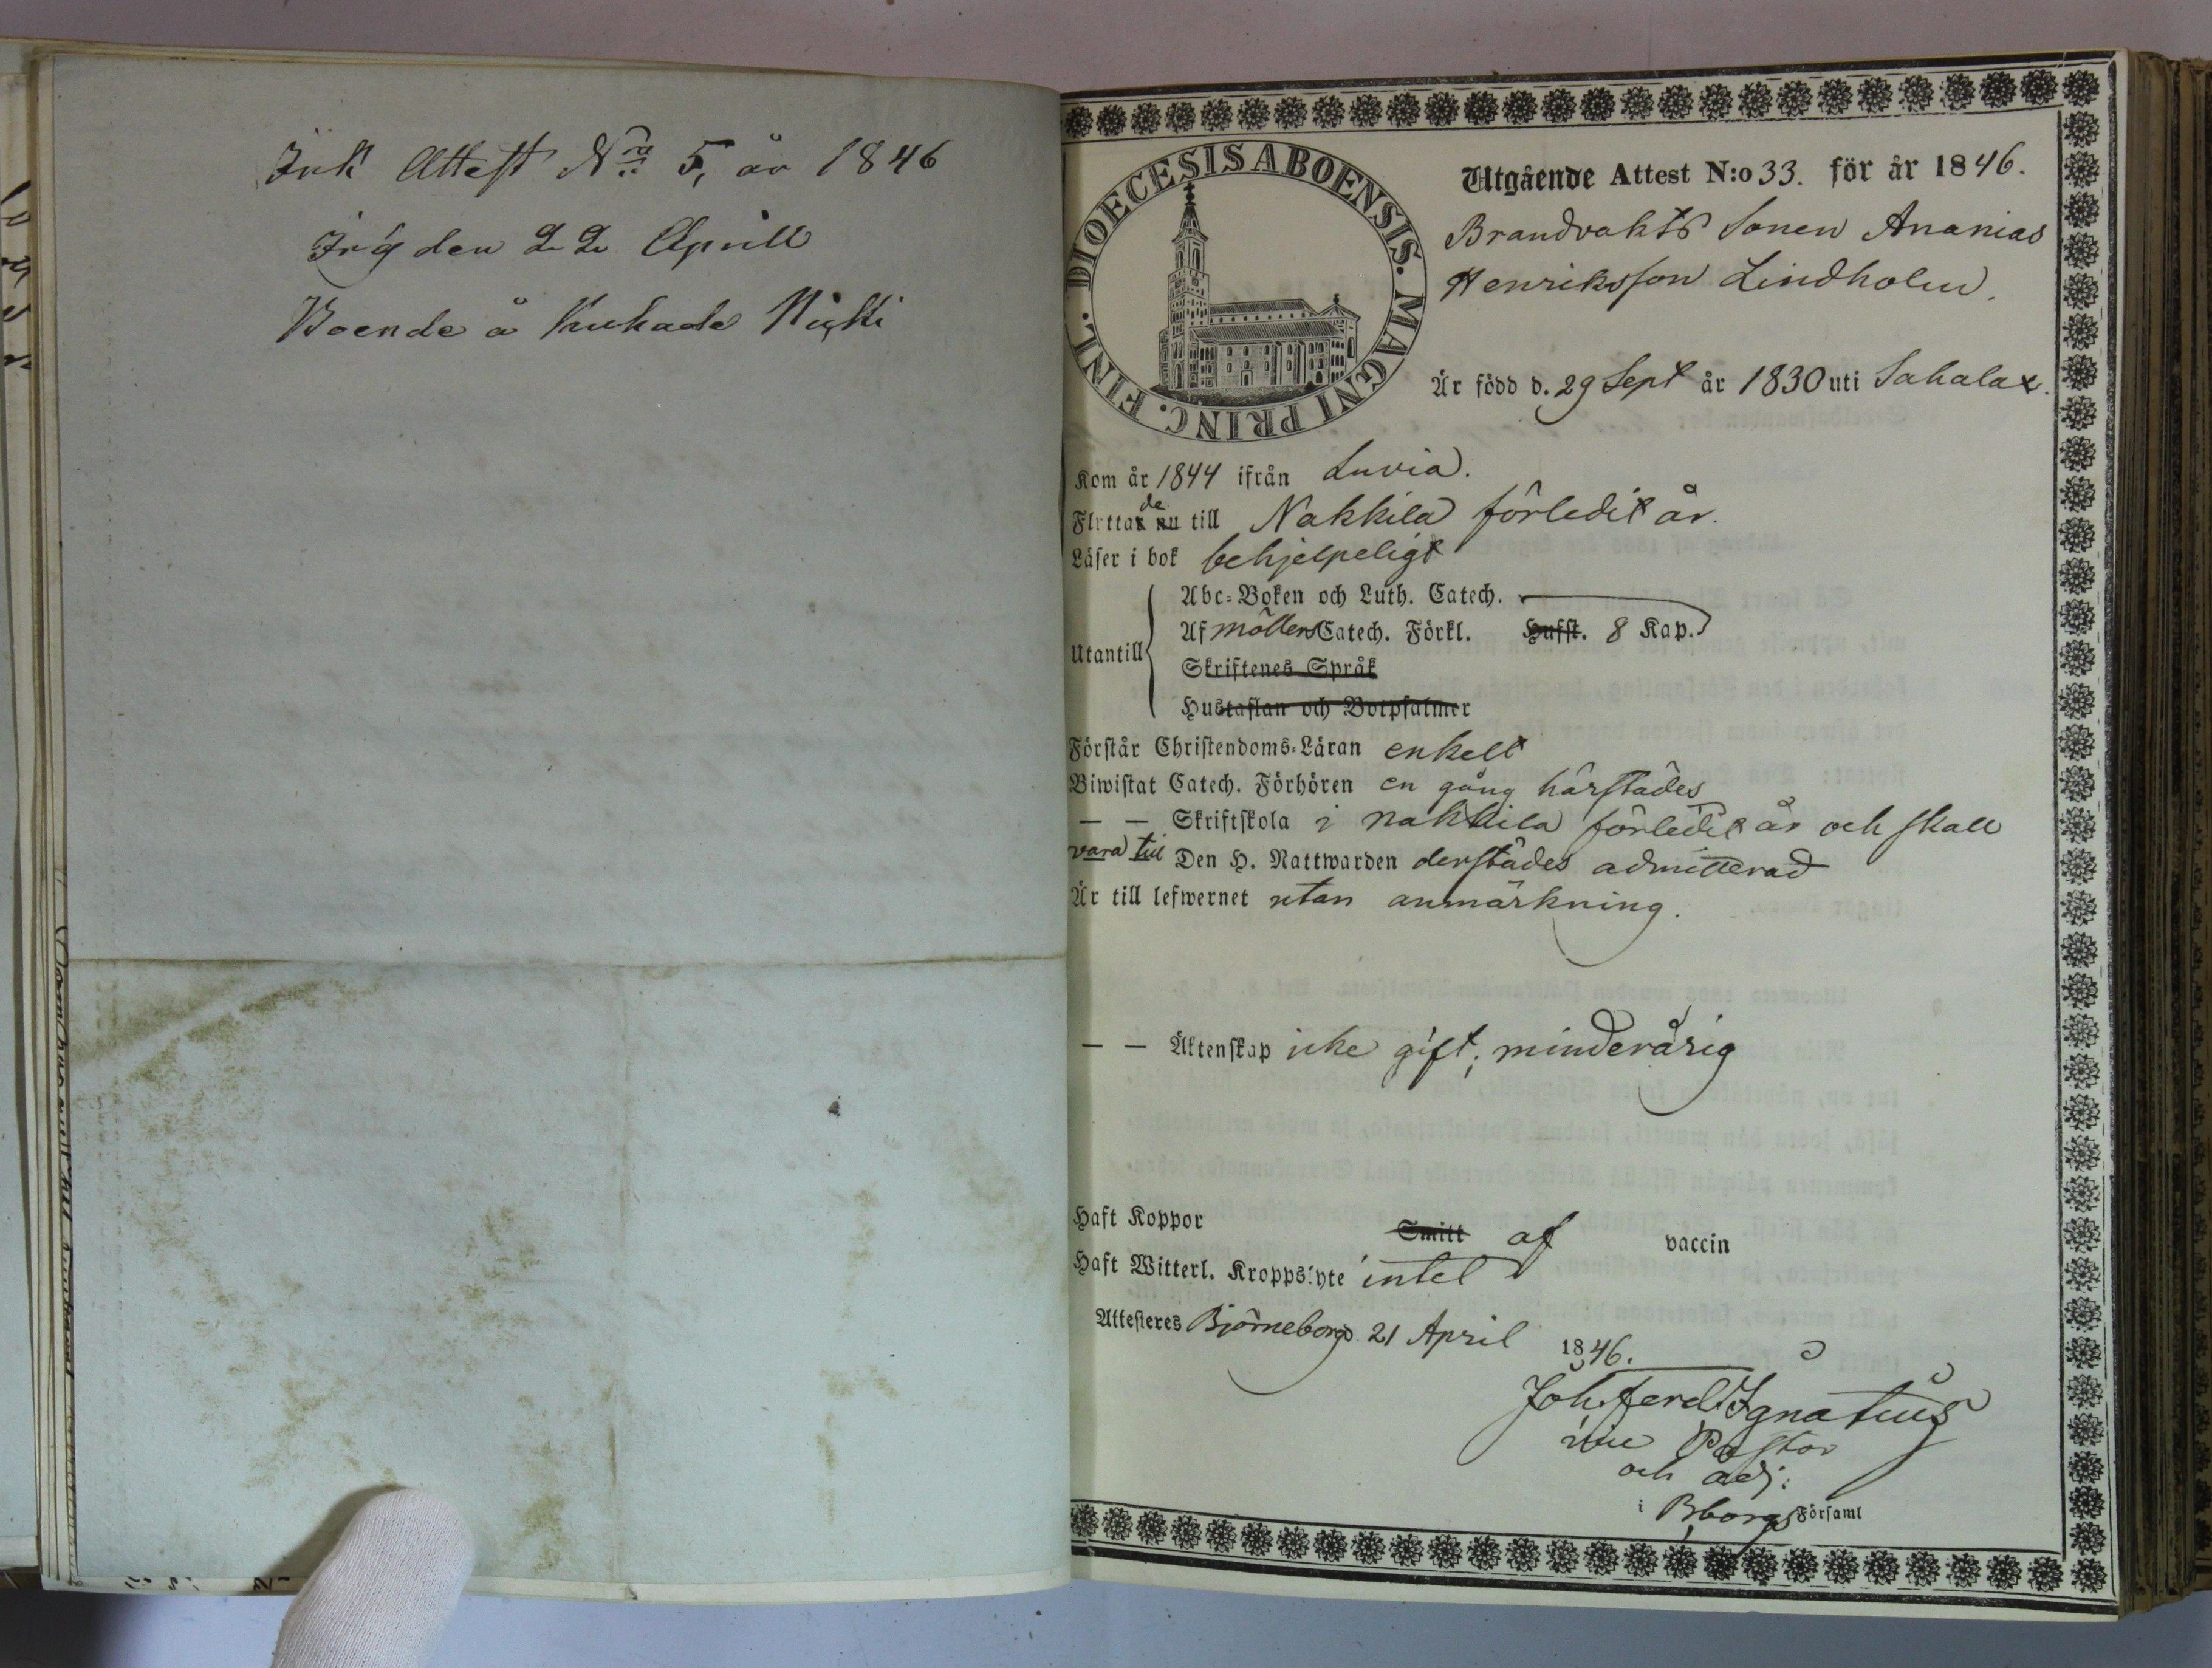 Ink Attest No 5, år 1846
Ing den 22 Aprill
Boende å Kukade
DIOECESIS ABOENSIS. MAGNI PRINC. FINL.
Utgående Attest N:o 33. för år 1846.
Brandvakts Sonen Ananias
Henriksson Lindholm.
Är född d. 29 Sept år 1830 uti Sahalax.
Kom år 1844 ifrån Luvia.
Flyttar de nu till Nakkila förledit år.
Läser i bok behjelpeligt
Utantill
Abc-Boken och Luth. Catech.
Af Möllers Catech. Förkl. Hufst. 8 Kap.
Skriftenes Språk
Hustaflan och Botpsalmer
Förstår Christendoms-Läran enkelt
Biwistat Catech. Förhören en gång härstädes
— — Skriftskola i Nakkila förledit år och skall
vara till Den H. Nattwarden derstädes admitterad
Är till lefwernet utan anmärkning.
— — Äktenskap icke gift; minderårig
Haft Koppor Smitt af vaccin
Haft Witterl. Kroppslyte intet
Attesteres Björneborg 21 April 1846.
Joh. Ferd. Ignatius
vice Pastor
och adj:
i Bborgs Församl